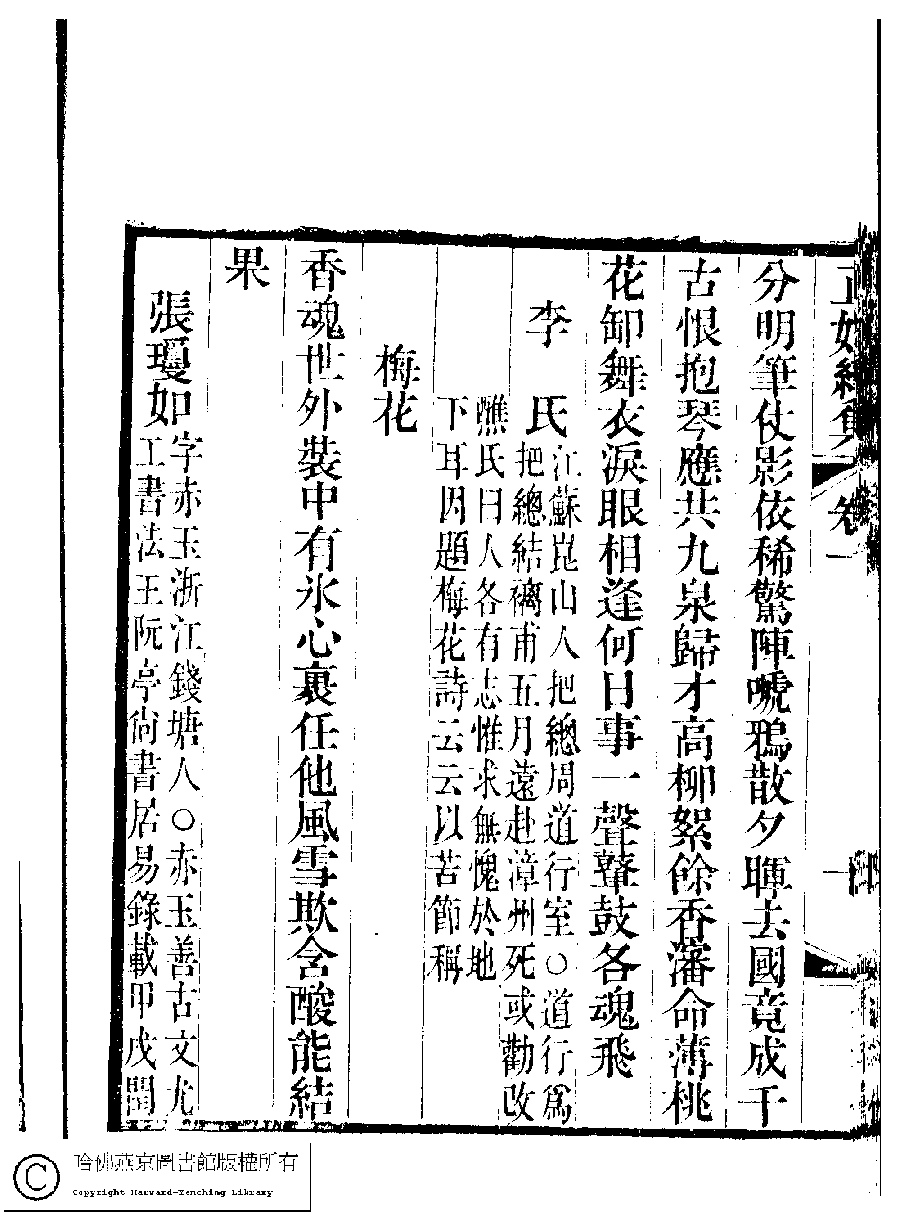 正始續集 卷一
分明筆仗影依稀驚陣嘵鴉散夕暉去國竟成千
古恨抱琴應共九泉歸才高柳絮餘香瀋命薄桃
花卸舞衣淚眼相逢何日事一聲鼙鼓各魂飛
李 氏
江蘇崑山人把總周道行室○道行爲
把總結褵甫五月遠赴漳州死或勸改
醮氏曰人各有志惟求無愧於地
下耳因題梅花詩云云以苦節稱
梅花
香魂世外裝中有氷心裏任他風雪欺含酸能結
果
張瓊如
字赤玉浙江錢塘人○赤玉善古文尤
工書法王阮亭尙書居易錄載甲戌閏
哈佛燕京圖書館版權所有
Copyright Harvard-Yenching Library